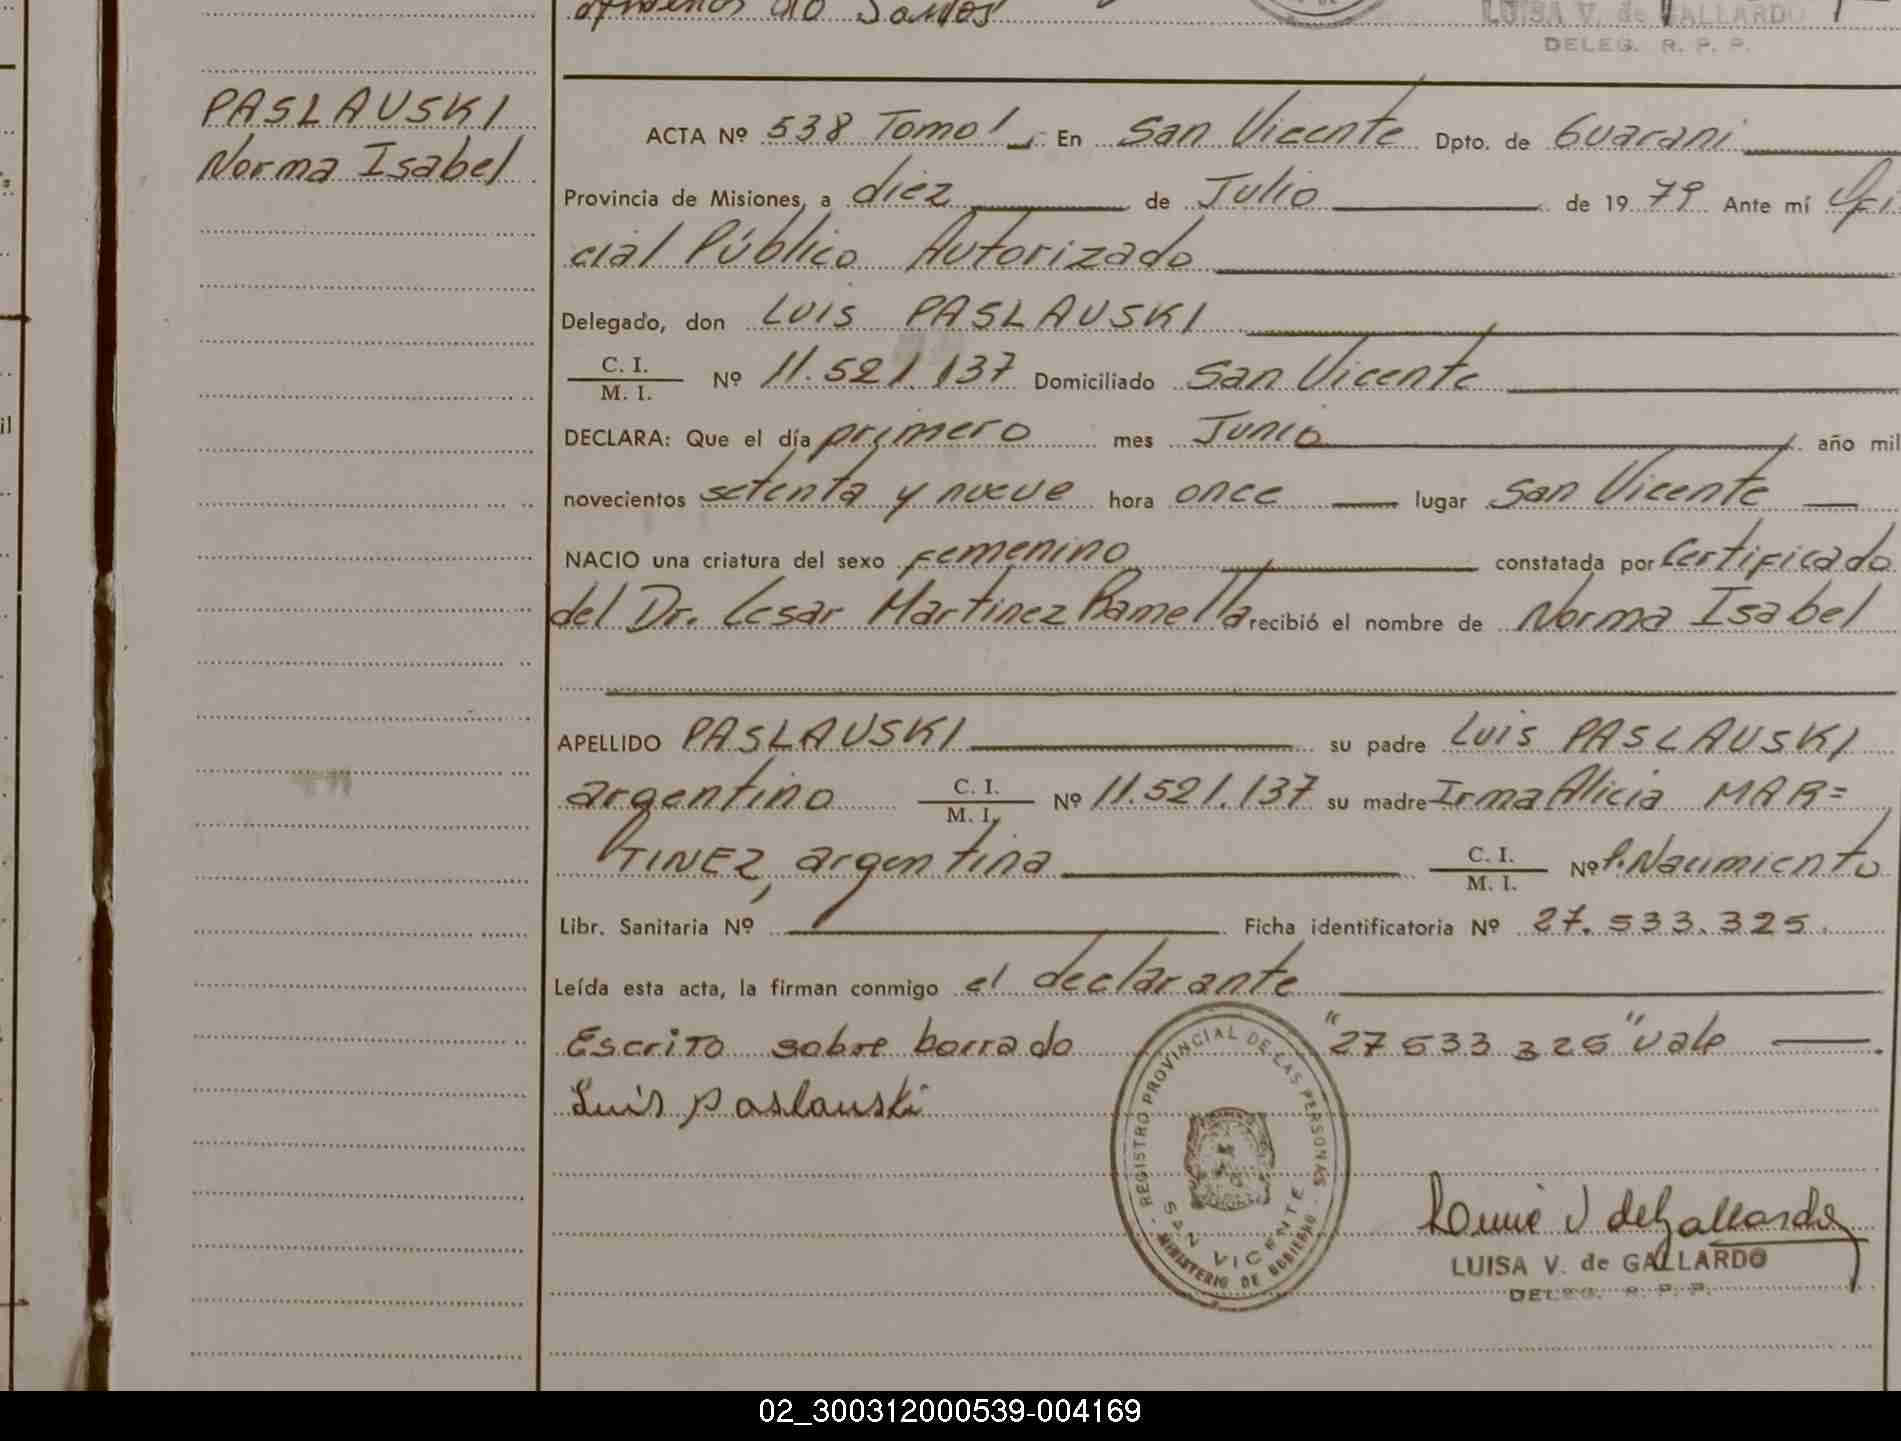 do Santos
LUISA V. de GALLARDO
DELEG. R. P. P.
PASLAUSKI
Norma Isabel
ACTA Nº 538 Tomo I En San Vicente Dpto. de Guarani
Provincia de Misiones, a diez de Julio de 1979 Ante mí Ofi
cial Público Autorizado
Delegado, don LUIS PASLAUSKI
C. I.
M. I. Nº 11.521.137 Domiciliado San Vicente
DECLARA: Que el día primero mes Junio año mil
novecientos setenta y nueve hora once lugar San Vicente
NACIO una criatura del sexo Femenino constatada por Certificado
del Dr. Cesar Martinez Ramella recibió el nombre de Norma Isabel
APELLIDO PASLAUSKI su padre Luis PASLAUSKI
argentino C. I.
M. I. Nº 11.521.137 su madre Irma Alicia MAR=
TINEZ, argentina C. I.
M. I. Nº P. Nacimiento
Libr. Sanitaria Nº Ficha identificatoria Nº 27.533.325.
Leída esta acta, la firman conmigo el declarante
Escrito sobre borrado "27 533 325" vale
Luis Paslauski
REGISTRO PROVINCIAL DE LAS PERSONAS
SAN VICENTE
MINISTERIO DE GOBIERNO
LUISA V. de GALLARDO
DELEG. R. P. P.
02_300312000539-004169